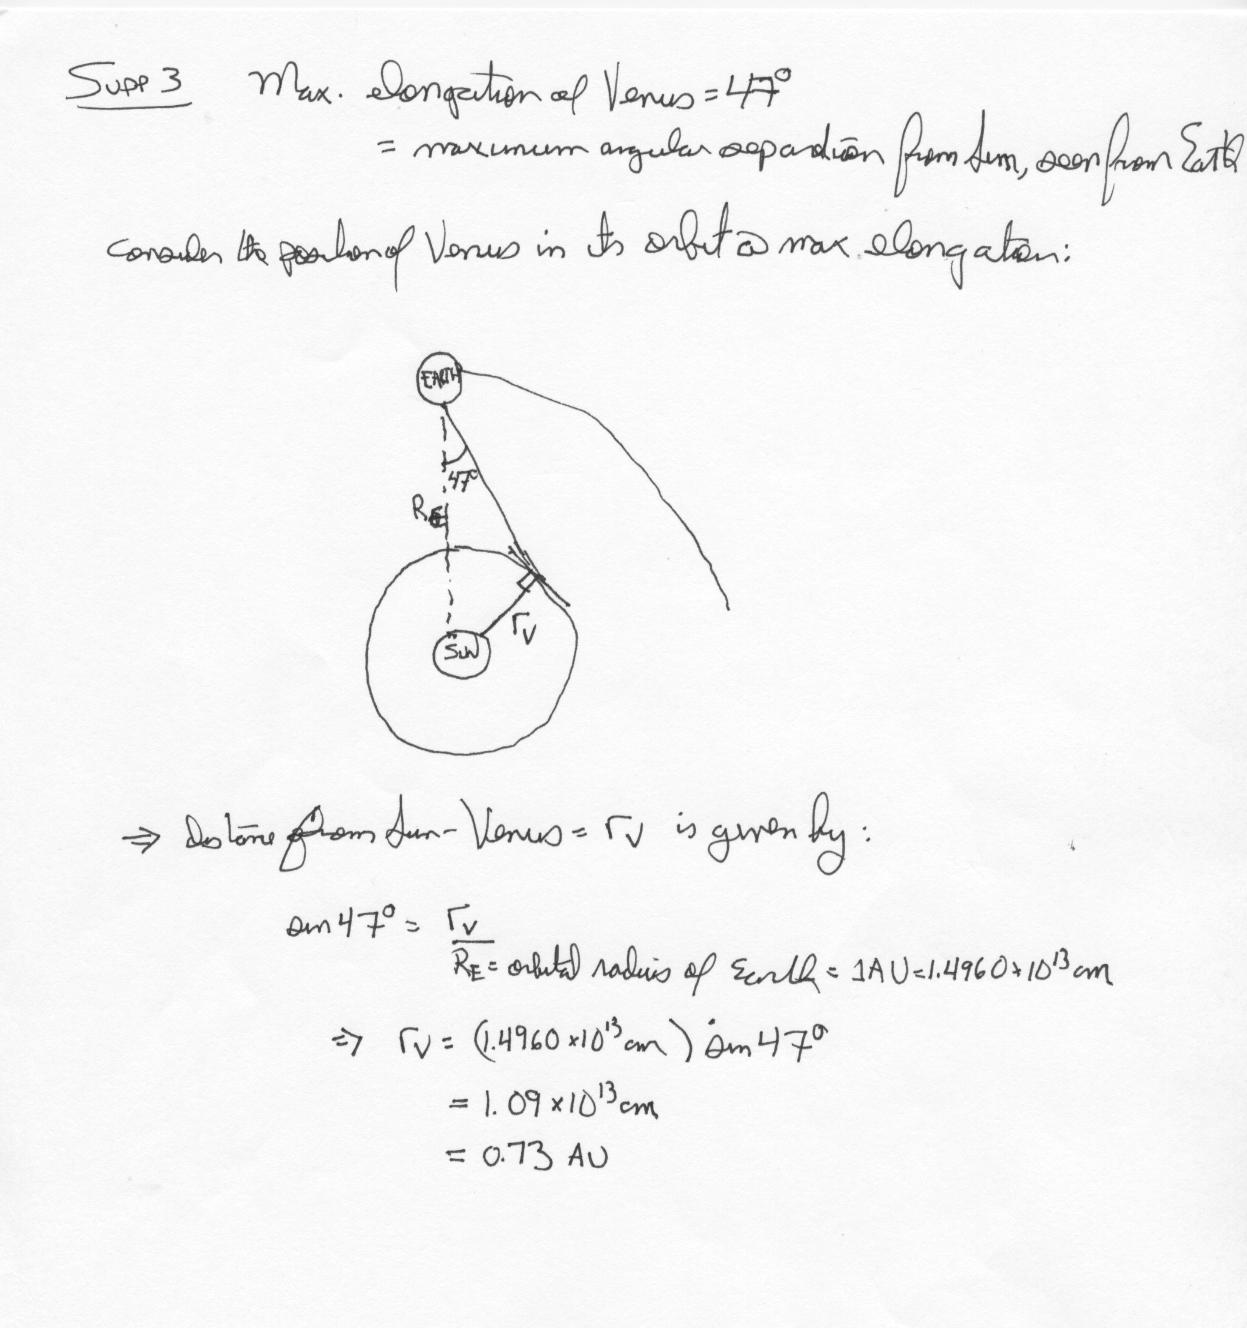 Supp 3 Max. elongation of Venus = 47°
= maximum angular separation from Sun, seen from Earth
Consider the position of Venus in its orbit @ max. elongation:
EARTH
47°
R_E
r_V
SUN
⇒ Distance from Sun-Venus = r_V is given by:
sin 47° = r_V
R_E = orbital radius of Earth = 1 AU = 1.4960 × 10^13 cm
⇒ r_V = (1.4960 × 10^13 cm) sin 47°
= 1.09 × 10^13 cm
= 0.73 AU